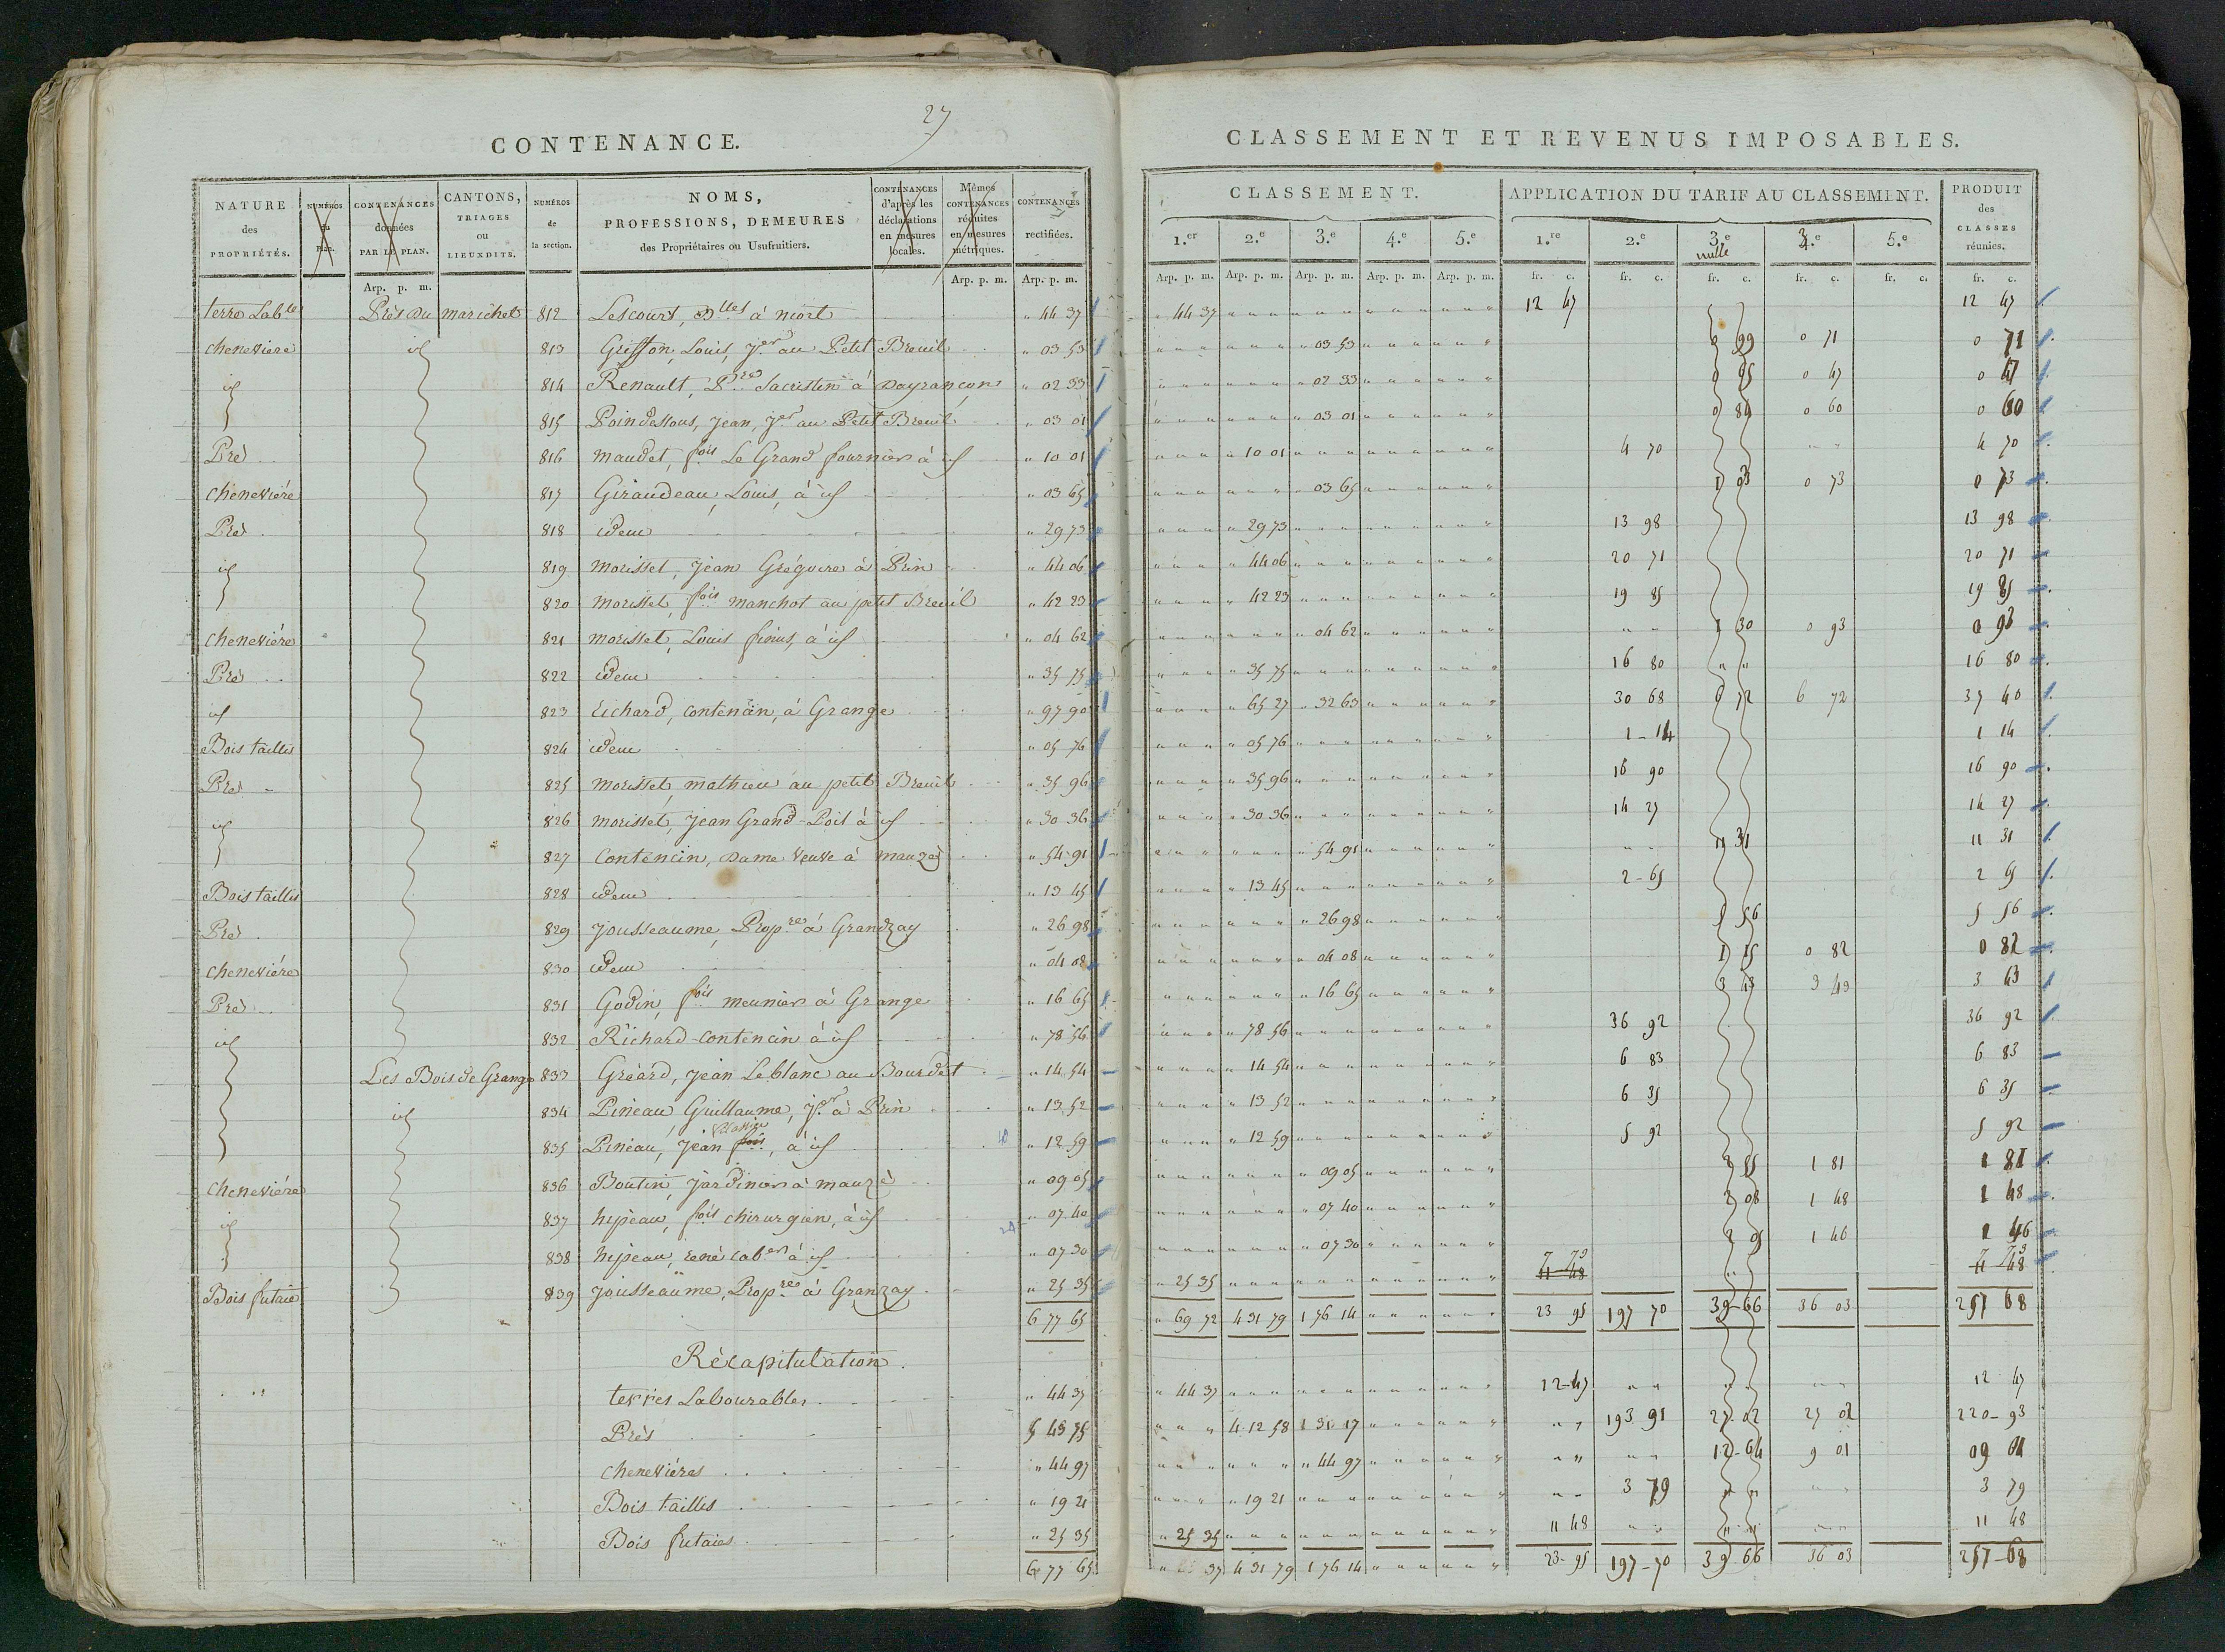 27
CONTENANCE.
NATURE des PROPRIÉTÉS. | NUMÉROS du Plan. | CONTENANCES données PAR LE PLAN. | CANTONS, TRIAGES ou LIEUXDITS. | NUMÉROS de la section. | NOMS, PROFESSIONS, DEMEURES des Propriétaires ou Usufruitiers. | CONTENANCES d'après les déclarations en mesures locales. | Mêmes CONTENANCES réduites en mesures métriques. | CONTENANCES rectifiées.
Arp. p. m. | Arp. p. m. | Arp. p. m.
terre Lab.le Près du marichet 812 Lescourt, D.lles à niort " 44 37
cheneviere id 813 Griffon, Louis, J.er au Petit Breuil " 03 53
id 814 Renault, P.re Sacristin à Dayrançon " 02 33
815 Poindessous, Jean, J.er au Petit Breuil " 03 01
Pré 816 maudet, f.ois Le Grand fournier à id " 10 01
cheneviére 817 Giraudeau, Louis, à id " 03 65
Pré 818 idem " 29 73
id 819 morisset, Jean Grégoire à Prin " 44 06
820 morisset, f.ois manchot au petit Breuil " 42 23
cheneviére 821 morisset, Louis finus, à id " 04 62
Pré 822 idem " 35 75
id 823 Richard, contencin, à Grange " 97 90
Bois taillis 824 idem " 05 76
Pré 825 morisset, mathieu au petit Breuil " 35 96
id 826 morisset, Jean Grand-Poil à id " 30 36
827 contencin, Dame veuve à mauzé " 54 91
Bois taillis 828 idem " 13 45
Pré 829 Jousseaume, Prop.re à Grandzay " 26 98
cheneviére 830 idem " 04 08
Pré 831 Godin, f.ois meunier à Grange " 16 65
id 832 Richard-contencin à id " 78 56
Les Bois de Grange 833 Gréard, Jean Leblanc au Bourdet " 14 54
id 834 Pineau, Guillaume, J.er à Prin " 13 52
835 Pineau, Jean f.ois, à id " 12 59
cheneviére 836 Boutin, jardinier à mauzé " 09 05
id 837 hypeau, f.ois chirurgien, à id " 07 40
838 hypeau, rené cab.er à id " 07 30
Bois futaie 839 Jousseaume, Prop.re à Granzay " 25 35
6 77 65
Récapitulation.
terres Labourables " 44 37
Prés 5 43 75
cheneviéres " 44 97
Bois taillis " 19 21
Bois futaies " 25 35
6 77 65
CLASSEMENT ET REVENUS IMPOSABLES.
CLASSEMENT. | APPLICATION DU TARIF AU CLASSEMENT. | PRODUIT des CLASSES réunies.
1.er | 2.e | 3.e | 4.e | 5.e | 1.re | 2.e | 3.e nulle | 4.e | 5.e
Arp. p. m. | Arp. p. m. | Arp. p. m. | Arp. p. m. | Arp. p. m. | fr. c. | fr. c. | fr. c. | fr. c. | fr. c. | fr. c.
" 44 37 | 12 47 | 12 47
" 03 53 | 0 99 | 0 71 | 0 71
" 02 33 | 0 65 | 0 47 | 0 47
" 03 01 | 0 84 | 0 60 | 0 60
" 10 01 | 4 70 | 4 70
" 03 65 | 1 03 | 0 73 | 0 73
" 29 73 | 13 98 | 13 98
" 44 06 | 20 71 | 20 71
" 42 23 | 19 85 | 19 85
" 04 62 | 1 30 | 0 93 | 0 93
" 35 75 | 16 80 | 16 80
" 65 27 | " 32 63 | 30 68 | 6 72 | 6 72 | 37 40
" 05 76 | 1-14 | 1 14
" 35 96 | 16 90 | 16 90
" 30 36 | 14 27 | 14 27
" 54 91 | 11 31 | 11 31
" 13 45 | 2-65 | 2 65
" 26 98 | 5 56 | 5 56
" 04 08 | 1 15 | 0 82 | 0 82
" 16 65 | 3 43 | 3 43 | 3 43
" 78 56 | 36 92 | 36 92
" 14 54 | 6 83 | 6 83
" 13 52 | 6 35 | 6 35
" 12 59 | 5 92 | 5 92
" 09 05 | 2 55 | 1 81 | 1 81
" 07 40 | 2 08 | 1 48 | 1 48
" 07 30 | 2 05 | 1 46 | 1 46
" 25 35 | 11 48 | 7 73 | 11 48 | 7 73
" 69 72 | 4 31 79 | 1 76 14 | 23 95 | 197 70 | 39-66 | 36 03 | 257 68
" 44 37 | 12-47 | 12 47
4 12 58 | 1 31 17 | 193 91 | 27-02 | 27 02 | 220-93
" 44 97 | 12-64 | 9 01 | 09 01
" 19 21 | 3 79 | 3 79
" 25 35 | 11 48 | 11 48
4 31 79 | 1 76 14 | 23-95 | 197-70 | 39-66 | 36 03 | 257-68